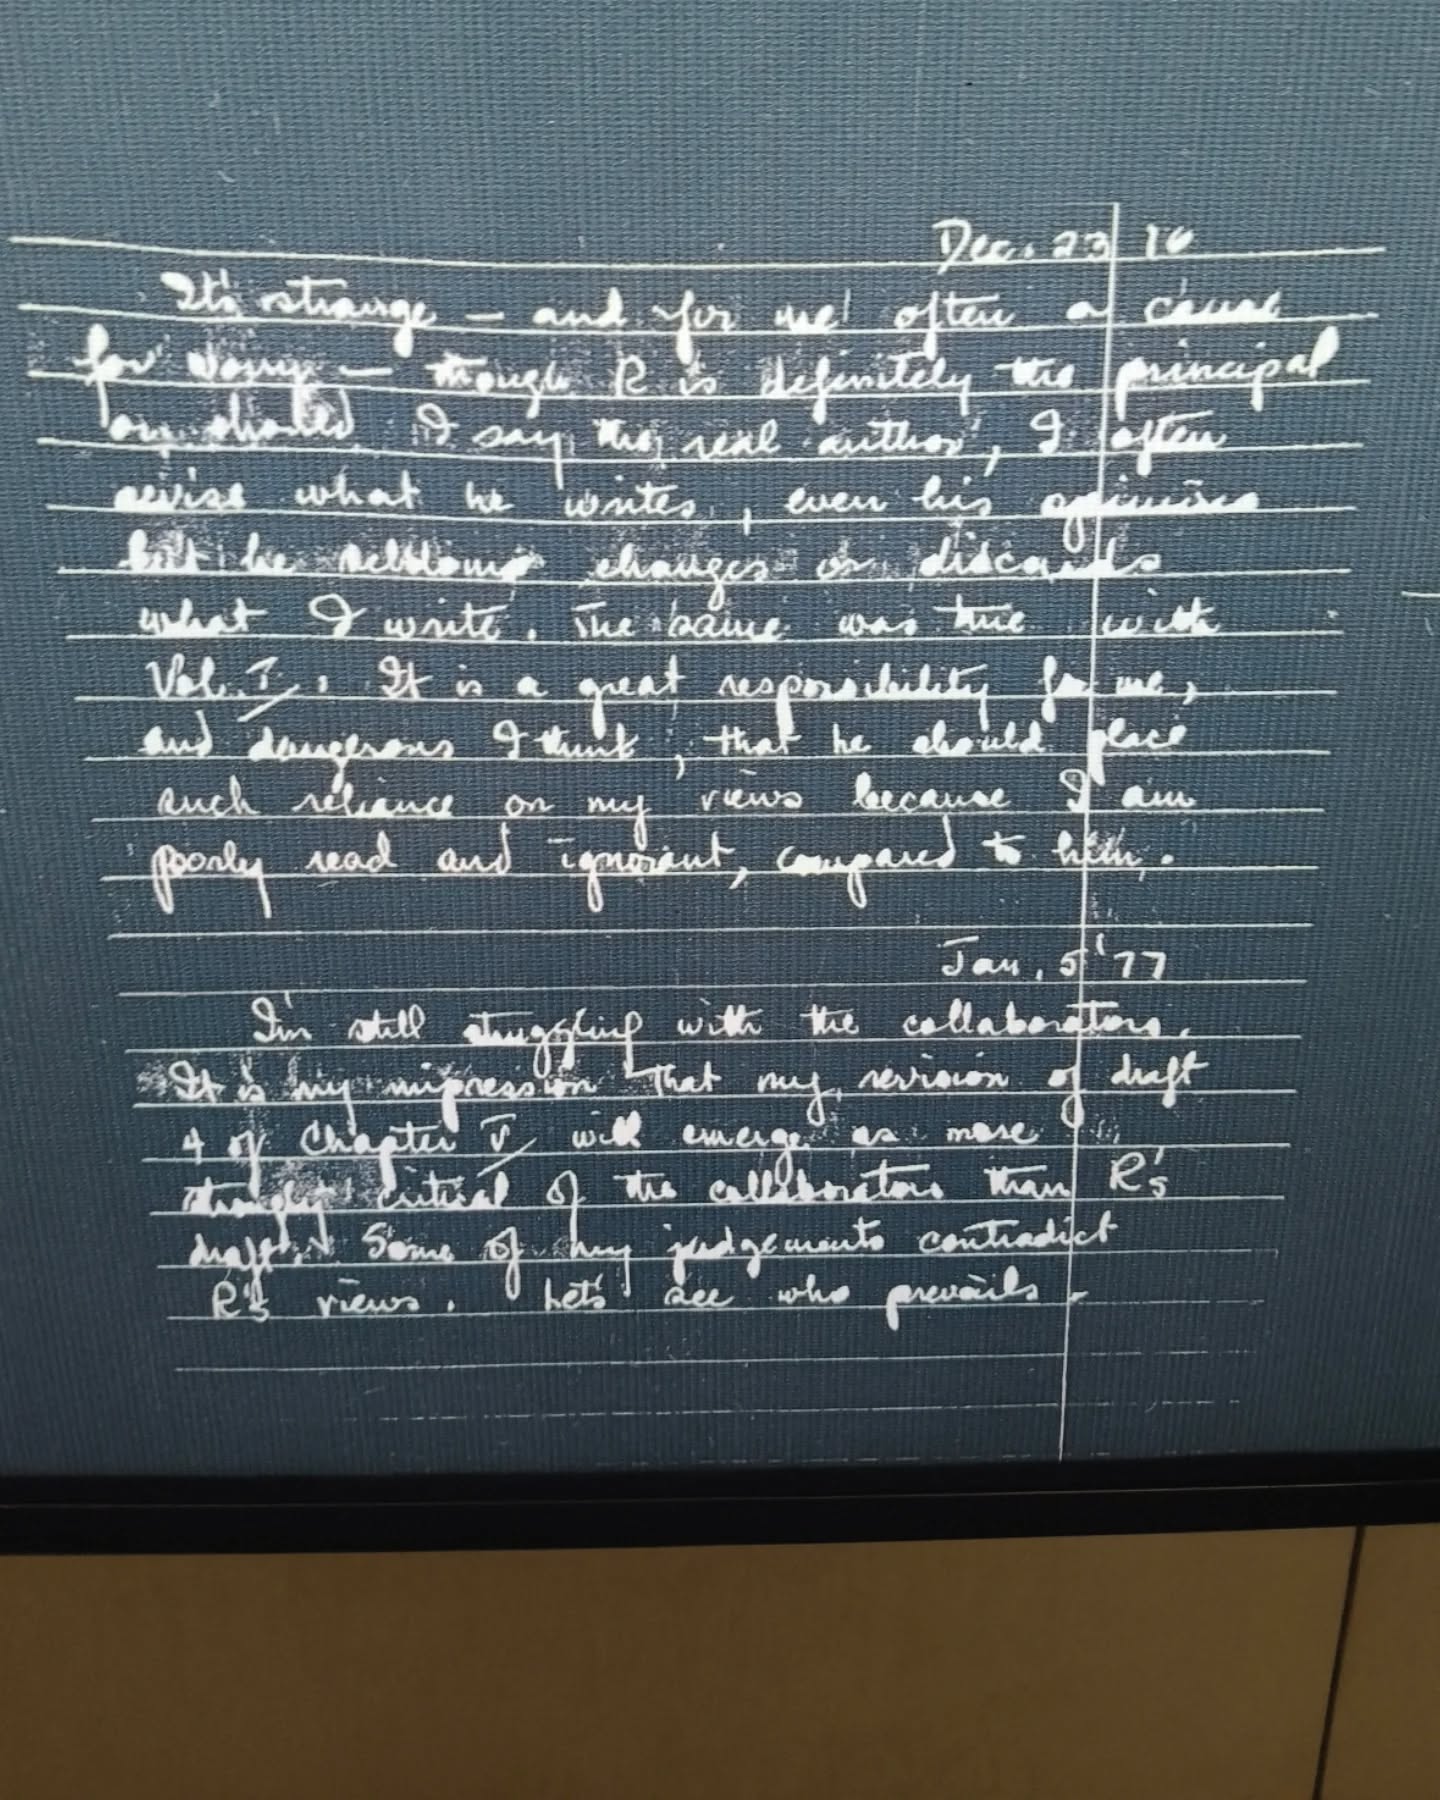 Dec. 23
It's strange — and for me often a cause
for worry — though R is definitely the principal
I say the real author, I often
revise what he writes, even his opinions
but he seldoms changes or discards
what I write. The same was true with
Vol. I. It is a great responsibility for me,
and dangerous I think, that he should place
such reliance on my views because I am
poorly read and ignorant, compared to him.
Jan. 5 '77
I'm still struggling with the collaborators.
It is my impression that my revision of draft
4 of Chapter V will emerge as more
critical of the collaborators than R's
draft. Some of my judgements contradict
R's views. Let's see who prevails.